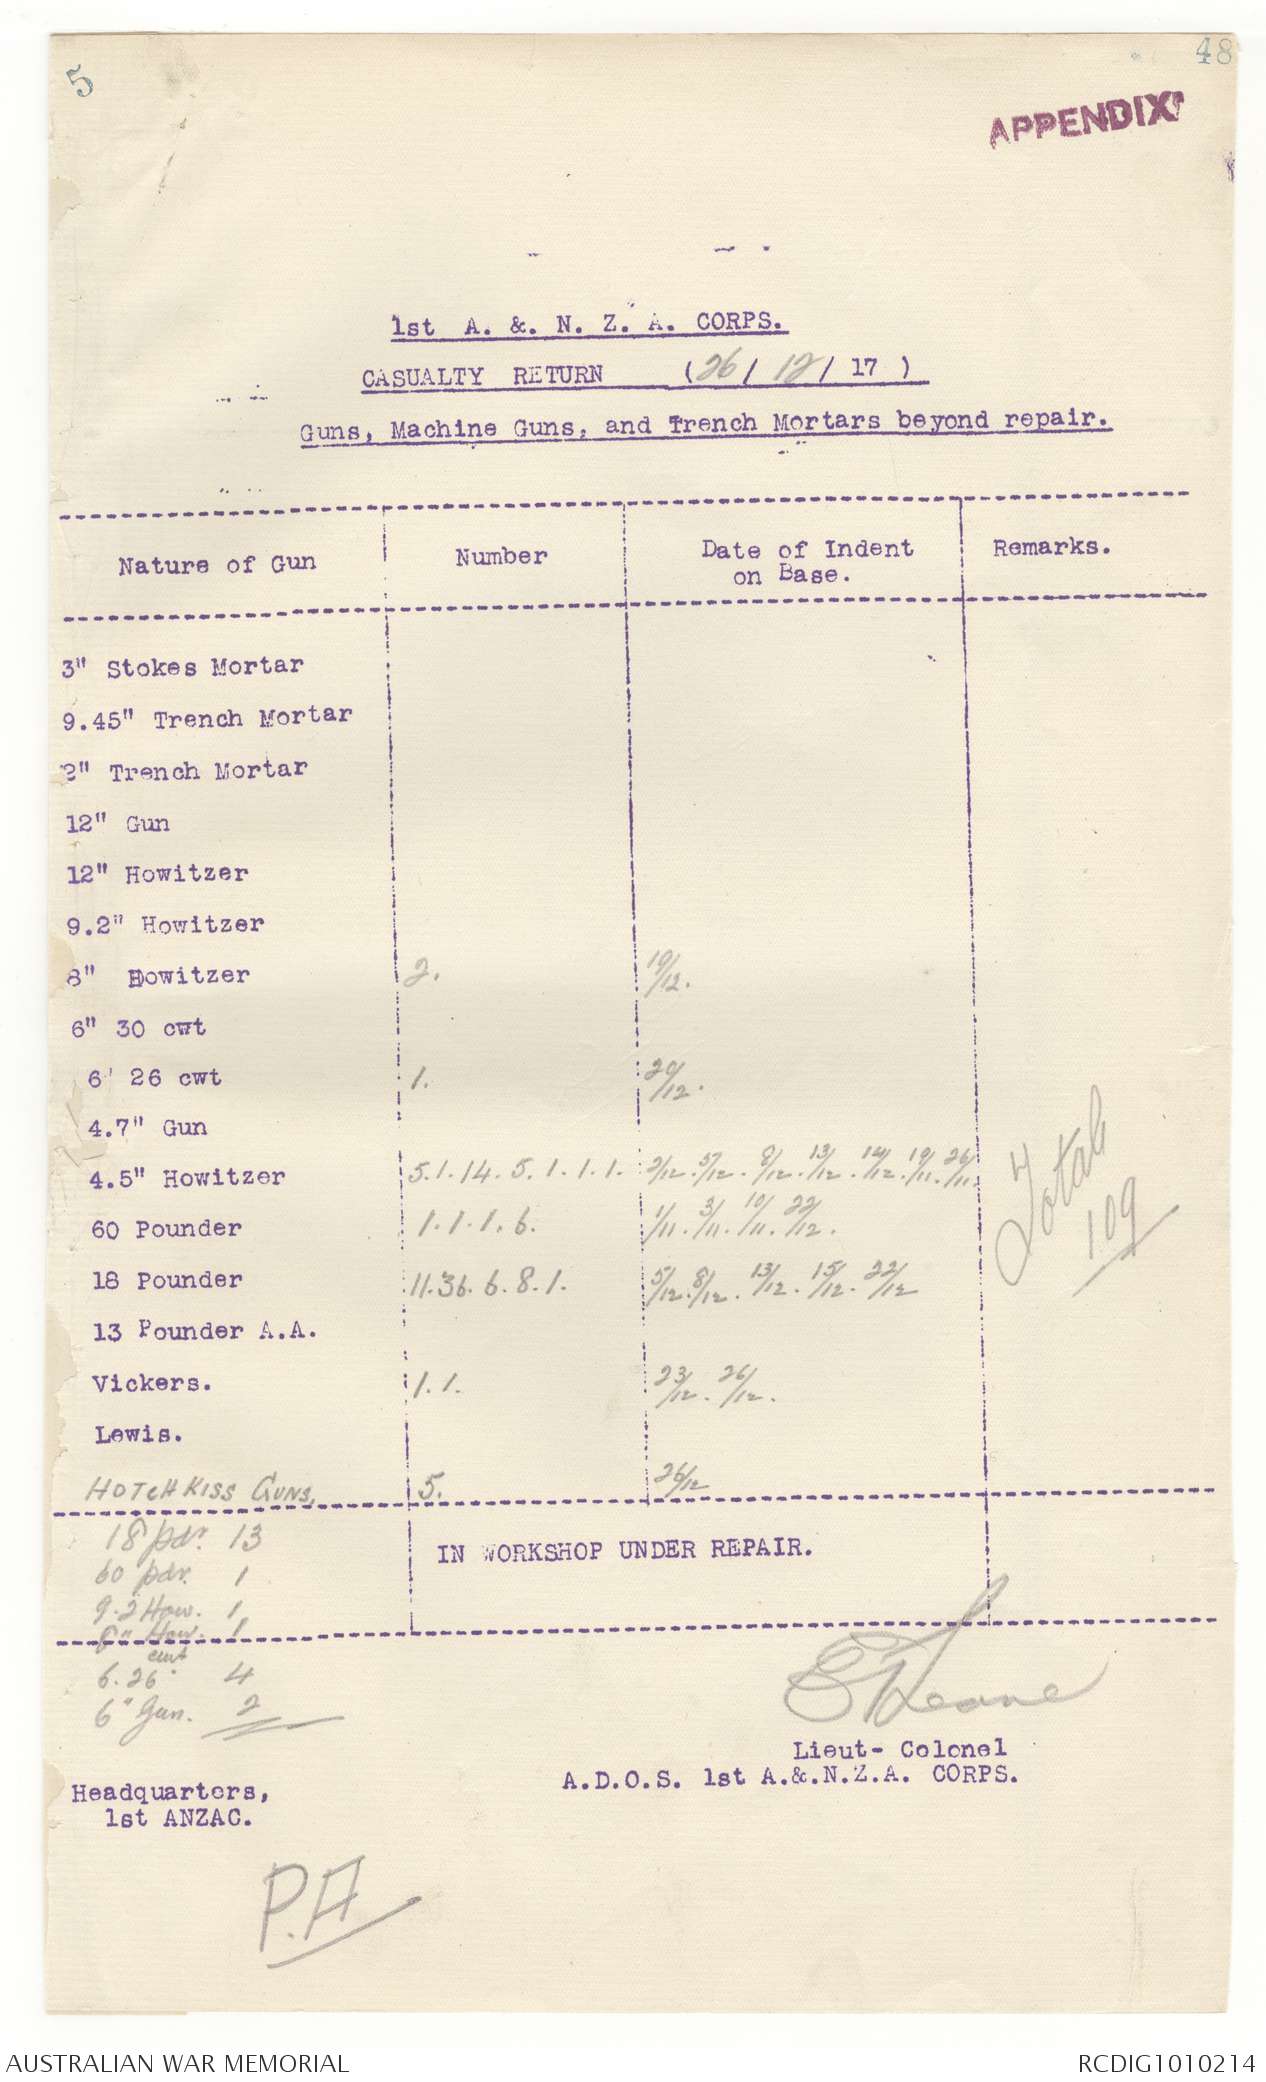 5
48
APPENDIX
1st A. &. N. Z. A. CORPS.
CASUALTY RETURN (26/ 12/ 17 )
Guns, Machine Guns, and Trench Mortars beyond repair.
Nature of Gun Number Date of Indent on Base. Remarks.
3" Stokes Mortar
9.45" Trench Mortar
2" Trench Mortar
12" Gun
12" Howitzer
9.2" Howitzer
8" Howitzer 2. 19/12.
6" 30 cwt
6' 26 cwt 1. 20/12.
4.7" Gun
4.5" Howitzer 5.1.14.5.1.1.1. 2/12. 5/12. 8/12. 13/12. 14/12. 19/11. 26/11.
60 Pounder 1.1.1.6. 1/11. 3/11. 10/11. 22/12.
18 Pounder 11.36.6.8.1. 5/12. 8/12. 13/12. 15/12. 22/12
13 Pounder A.A.
Vickers. 1.1. 23/12. 26/12.
Lewis.
HOTCHKISS GUNS, 5. 26/12
Total
109
IN WORKSHOP UNDER REPAIR.
18 pdr. 13
60 pdr. 1
9.2 How. 1
8" How. 1
6.26 cwt 4
6" Gun. 2
Lieut- Colonel
A.D.O.S. 1st A.&.N.Z.A. CORPS.
Headquarters,
1st ANZAC.
P.A
AUSTRALIAN WAR MEMORIAL
RCDIG1010214